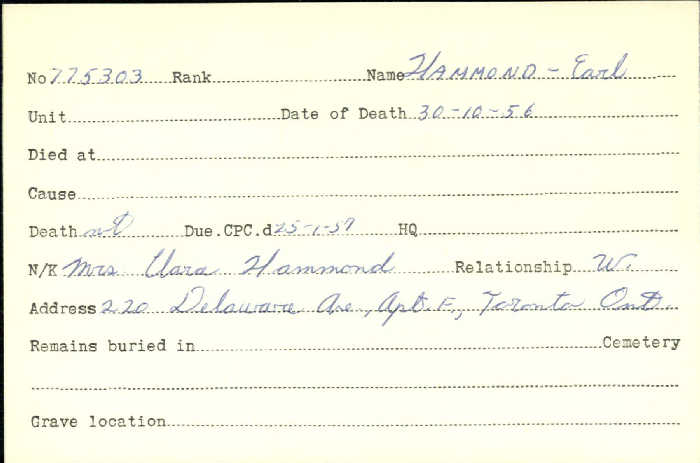 No 775303 Rank Name HAMMOND - Earl
Unit Date of Death 30-10-56
Died at
Cause
Death nt Due.CPC.d 25-1-57 HQ
N/K Mrs Clara Hammond Relationship W.
Address 220 Delaware Ave., Apt. F., Toronto Ont.
Remains buried in Cemetery
Grave location